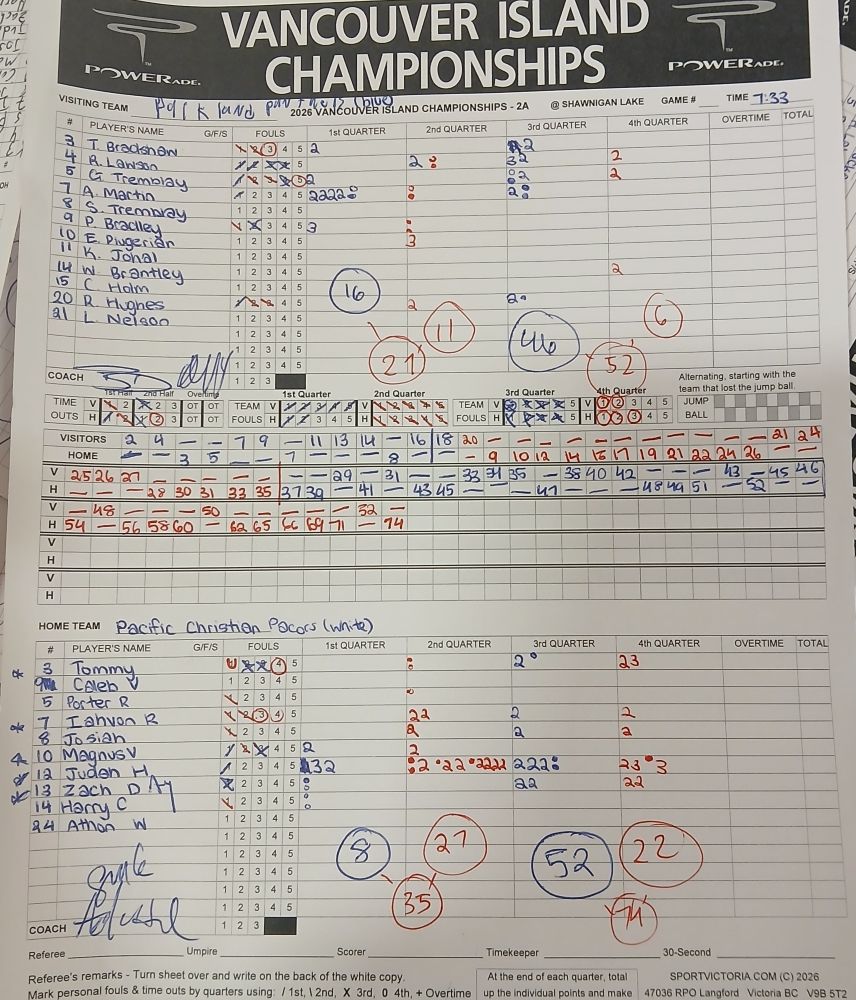 VANCOUVER ISLAND
CHAMPIONSHIPS
POWERADE.
POWERADE.
VISITING TEAM Parkland panthers (blue) 2026 VANCOUVER ISLAND CHAMPIONSHIPS - 2A @ SHAWNIGAN LAKE GAME # TIME 7:33
# PLAYER'S NAME G/F/S FOULS 1st QUARTER 2nd QUARTER 3rd QUARTER 4th QUARTER OVERTIME TOTAL
3 T. Bradshaw 1 2 3 4 5 2 2
4 R. Lawson 1 2 3 4 5 2 32 2
5 G. Tremblay 1 2 3 4 5 2 2 2
7 A. Martin 1 2 3 4 5 2222 2
8 S. Tremblay 1 2 3 4 5
9 P. Bradley 1 2 3 4 5 3
10 E. 1 2 3 4 5 3
11 K. Johal 1 2 3 4 5
14 W. Brantley 1 2 3 4 5 2
15 C. Holm 1 2 3 4 5
20 R. Hughes 1 2 3 4 5 2 2
21 L. Nelson 1 2 3 4 5
1 2 3 4 5
1 2 3 4 5
1 2 3 4 5
16 21 11 46 52 6
COACH 1 2 3
Alternating, starting with the team that lost the jump ball.
1st Half 2nd Half Overtime 1st Quarter 2nd Quarter 3rd Quarter 4th Quarter
TIME V 1 2 1 2 3 OT OT TEAM V 1 2 3 4 5 V 1 2 3 4 5 TEAM V 1 2 3 4 5 V 1 2 3 4 5 JUMP
OUTS H 1 2 1 2 3 OT OT FOULS H 1 2 3 4 5 H 1 2 3 4 5 FOULS H 1 2 3 4 5 H 1 2 3 4 5 BALL
VISITORS 2 4 — — 7 9 — 11 13 14 — 16 18 20 — — — — — — — — — — 21 24
HOME — — 3 5 — — 7 — — — 8 — — — 9 10 12 14 16 17 19 21 22 24 26 — —
V 25 26 27 — — — — — — — 29 — 31 — — 33 34 35 — 38 40 42 — — — 43 — 45 46
H — — — 28 30 31 33 35 37 39 — 41 — 43 45 — — — 47 — — — 48 49 51 — 52 — —
V — 48 — — — 50 — — — — — 52 —
H 54 — 56 58 60 — 62 65 66 69 71 — 74
V
H
V
H
HOME TEAM Pacific Christian Pacers (white)
# PLAYER'S NAME G/F/S FOULS 1st QUARTER 2nd QUARTER 3rd QUARTER 4th QUARTER OVERTIME TOTAL
3 Tommy 1 2 3 4 5 2 23
Caleb V 1 2 3 4 5
5 Porter R 1 2 3 4 5
7 Iahvon R 1 2 3 4 5 22 2 2
8 Josiah 1 2 3 4 5 2 2 2
10 Magnus V 1 2 3 4 5 2 2
12 Judah H 1 2 3 4 5 32 2 22 2222 222 23 3
13 Zach D 1 2 3 4 5 22 22
14 Harry C 1 2 3 4 5
24 Athan W 1 2 3 4 5
1 2 3 4 5
1 2 3 4 5
1 2 3 4 5
1 2 3 4 5
1 2 3 4 5
8 27 35 52 22 74
COACH 1 2 3
Referee Umpire Scorer Timekeeper 30-Second
Referee's remarks - Turn sheet over and write on the back of the white copy.
Mark personal fouls & time outs by quarters using: / 1st, \ 2nd, X 3rd, 0 4th, + Overtime
At the end of each quarter, total
up the individual points and make
SPORTVICTORIA.COM (C) 2026
47036 RPO Langford Victoria BC V9B 5T2